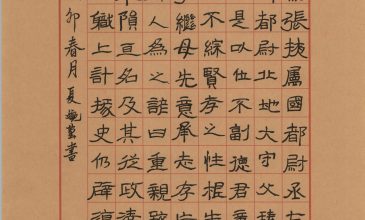 張掖屬國都尉丞右
都尉北地大守父琫
是以位不副德君童
不綜賢孝之性根生
繼母先意承志存亡
人為之諺曰重親致
隕其名及其從政清
職上計掾史仍辟涼
卯春月夏書